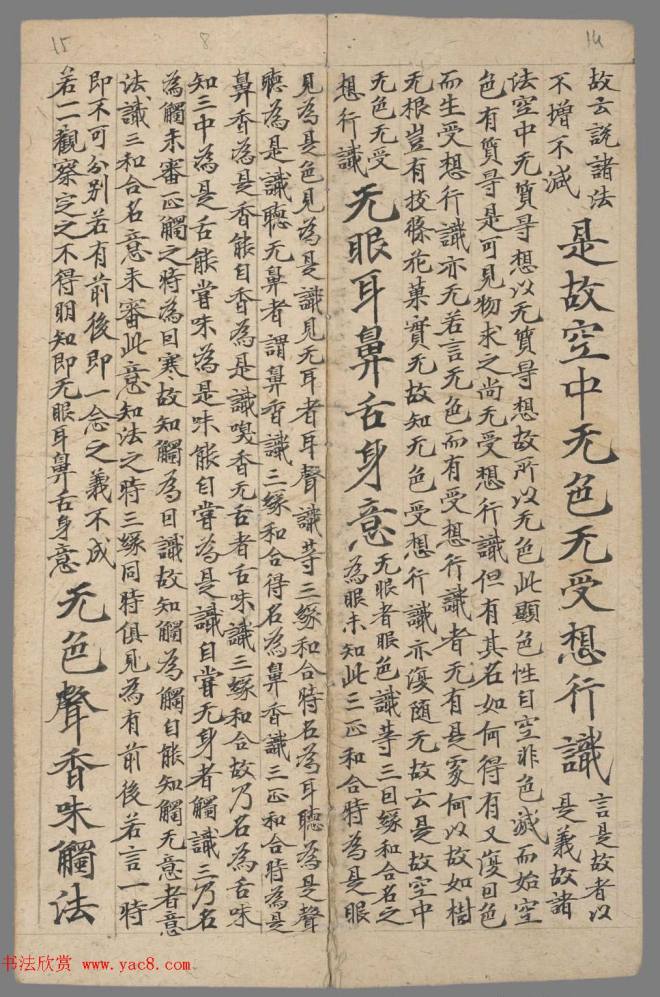 14
故云說諸法
不增不減
是故空中无色无受想行識
言是故者以
是義故諸
法空中无質㝵想以无質㝵想故所以无色此顯色性自空非色滅而始空
色有質㝵是可見物求之尚无受想行識但有其名如何得有又復因色
而生受想行識亦无若言无色而有受想行識者无有是處何以故如樹
无根豈有枝條花菓實无故知无色受想行識亦復随无故云是故空中
无色无受
想行識
无眼耳鼻舌身意
无眼者眼色識等三因緣和合名之
為眼未知此三正和合時為是眼
見為是色見為是識見无耳者耳聲識等三緣和合時名為耳聽為是聲
聽為是識聽无鼻者謂鼻香識三緣和合得名為鼻香識三正和合時為是
鼻香為是香能自香為是識嗅香无舌者舌味識三緣和合故乃名為舌味
知三中為是舌能甞味為是味能自甞為是識自甞无身者觸識三乃名
為觸未審正觸之時為因寒故知觸為因識故知觸為觸自能知觸无意者意
法識三和合名意未審此意知法之時三緣同時俱見為有前後若言一時
即不可分別若有前後即一念之義不成
若二觀察定之不得明知即无眼耳鼻舌身意
无色聲香味觸法
8
15
书法欣赏 www.yac8.com